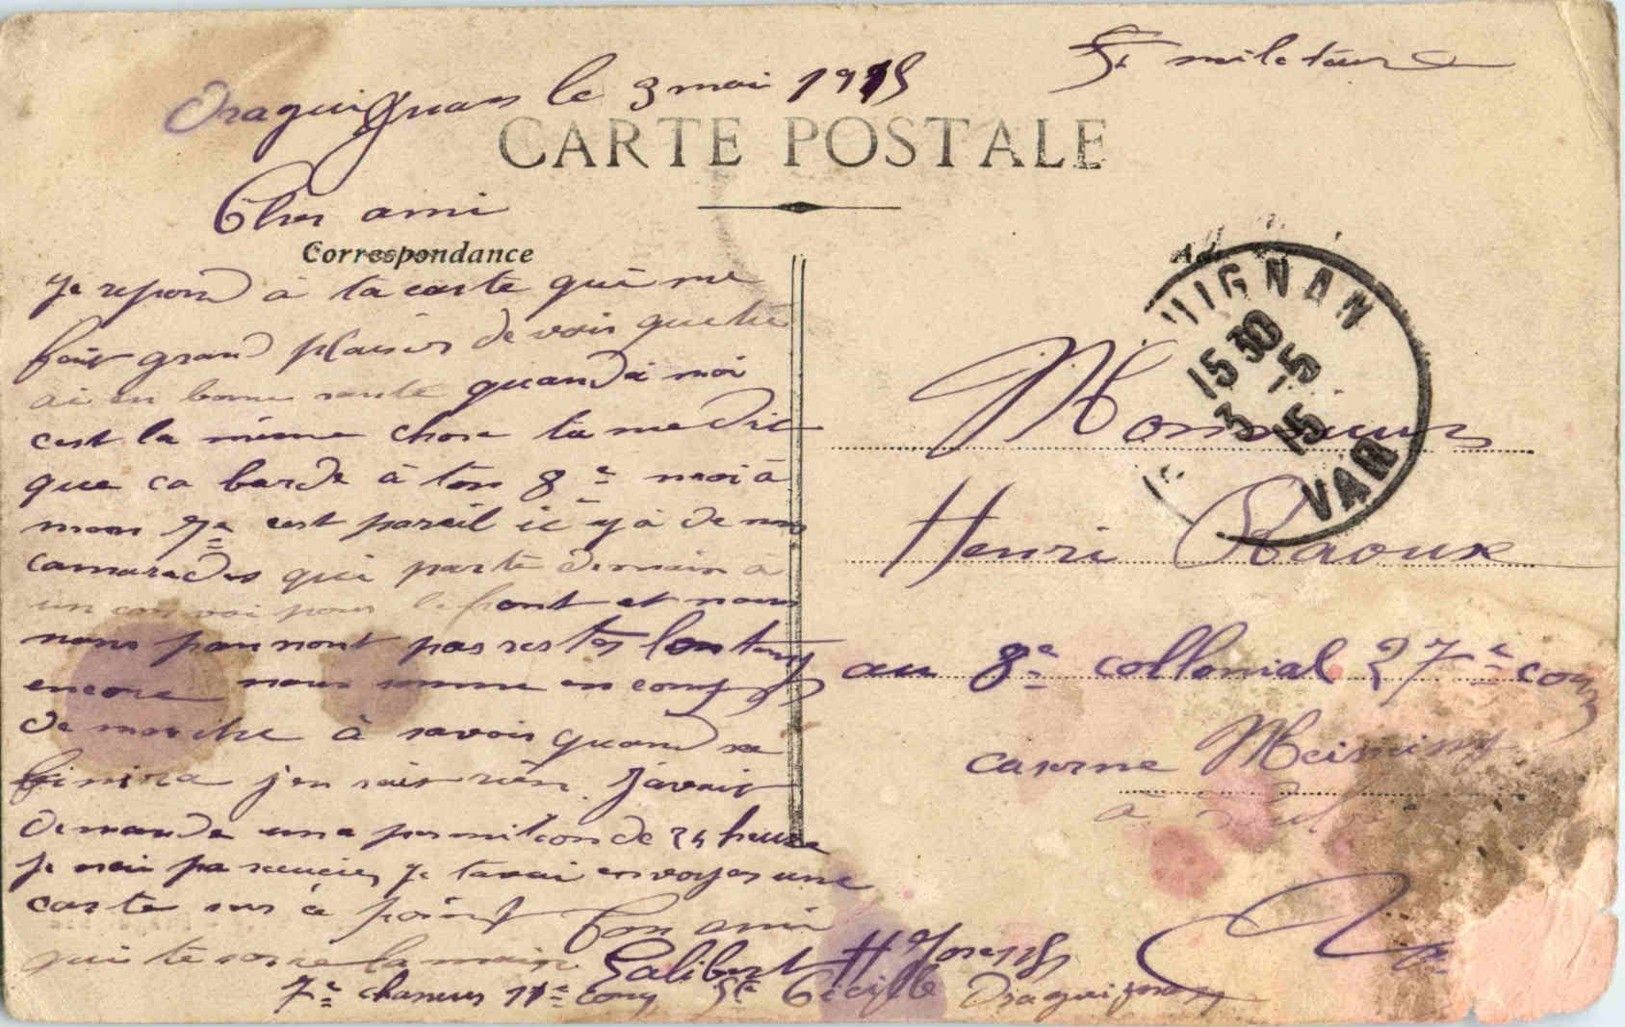 Draguignan le 3 mai 1915
F. militaire
CARTE POSTALE
Cher ami
Correspondance
je repond à ta carte qui me
fait grand plaisir de voir que tu
ai en bonne santé quand à moi
cest la même chose tu me dit
que ca barde à ton 8e moi à
mon 7e cest pareil ic y à de nos
camarades qui parte demain à
un convoi pour le front et nous
nous pouront pas rester lontemps
encore nous somme en
de marche à savoir quand sa
finira j'en sait rien. J'avait
demande une permition de 24 heure
je nai pas je tavai envoyer une
carte sur à point ton ami
qui te serre la main. Galibert Joseph
7e chasseur 11e Cony Ste Cécille Draguignan
UIGNAN
15 30
3 -5
15
VAR
Monsieur
Henri Raoux
au 8e collonial 27e cony
caserne
à
Var